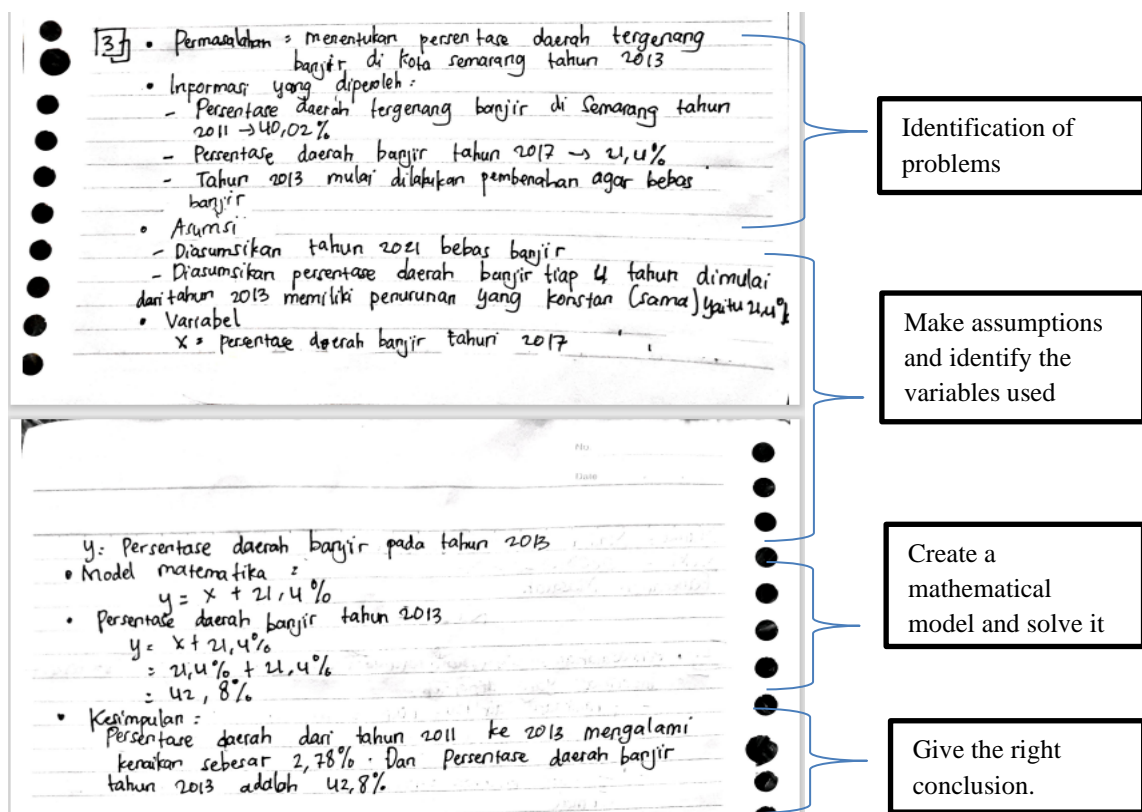 3. • Permasalahan = menentukan persentase daerah tergenang
banjir di kota semarang tahun 2013
• Informasi yang diperoleh :
- Persentase daerah tergenang banjir di Semarang tahun
2011 → 40,02%
- Persentase daerah banjir tahun 2017 → 21,4%
- Tahun 2013 mulai dilakukan pembenahan agar bebas
banjir
• Asumsi
- Diasumsikan tahun 2021 bebas banjir
- Diasumsikan persentase daerah banjir tiap 4 tahun dimulai
dari tahun 2013 memiliki penurunan yang konstan (sama) yaitu 21,4%
• Variabel
x = persentase daerah banjir tahun 2017
Identification of
problems
Make assumptions
and identify the
variables used
No.
Date
y: Persentase daerah banjir pada tahun 2013
• Model matematika :
y = x + 21,4%
• Persentase daerah banjir tahun 2013
y = x + 21,4%
= 21,4% + 21,4%
= 42,8%
• Kesimpulan :
Persentase daerah dari tahun 2011 ke 2013 mengalami
kenaikan sebesar 2,78%. Dan Persentase daerah banjir
tahun 2013 adalah 42,8%.
Create a
mathematical
model and solve it
Give the right
conclusion.